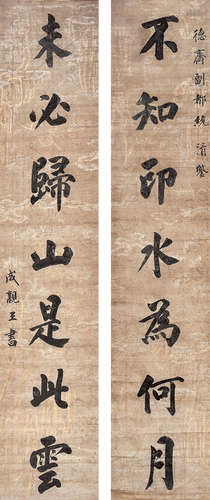 德齋副都統清鑒
不知印水為何月
未必歸山是此雲
成親王書